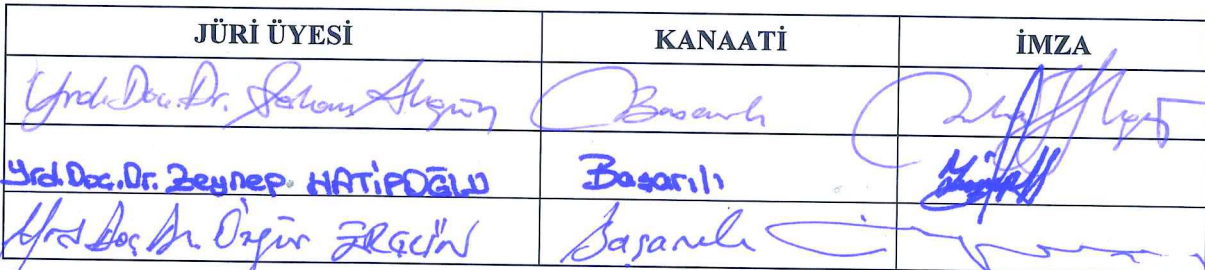 JÜRİ ÜYESİ KANAATİ İMZA
Yrd. Doç. Dr. Başarılı
Yrd. Doç. Dr. Zeynep HATİPOĞLU Başarılı
Yrd Doç Dr. Özgür ERÇİN Başarılı